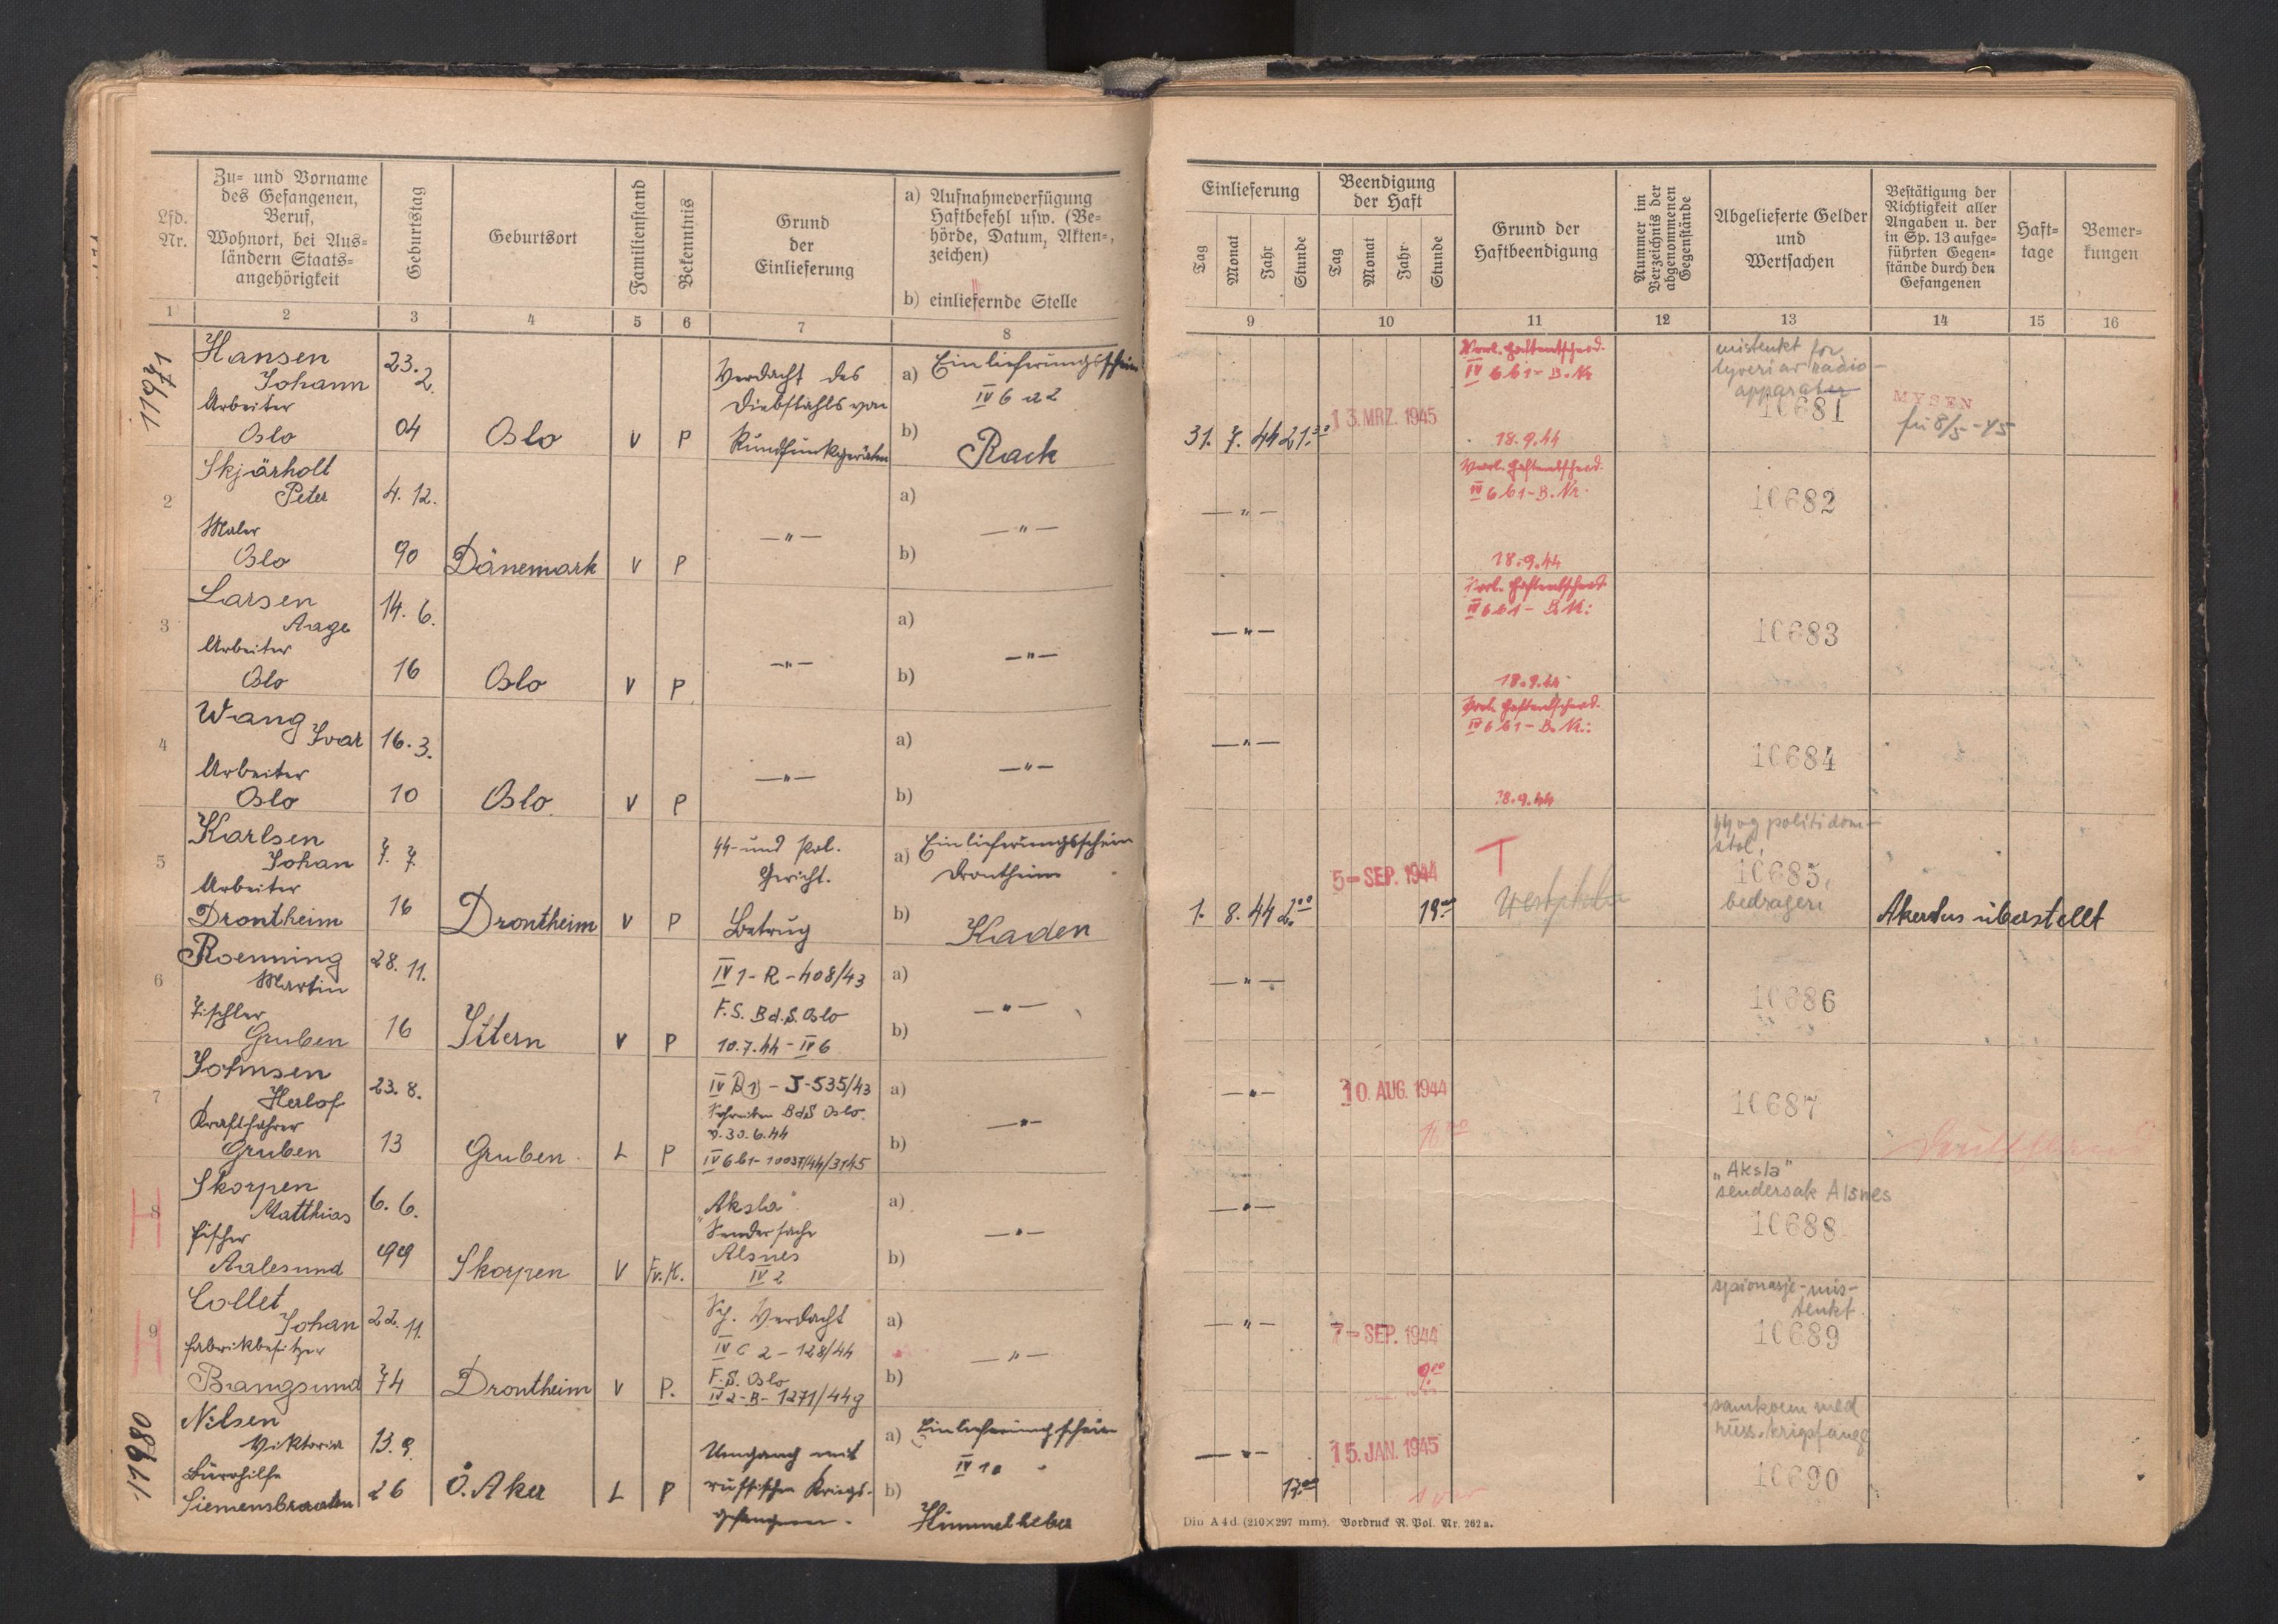 Lfd. Nr.
Zu= und Vorname
des Gefangenen,
Beruf,
Wohnort, bei Aus=
ländern Staats=
angehörigkeit
Geburtstag
Geburtsort
Familienstand
Bekenntnis
Grund
der
Einlieferung
a) Aufnahmeverfügung
Haftbefehl usw. (Be=
hörde, Datum, Akten=,
zeichen)
b) einliefernde Stelle
1 2 3 4 5 6 7 8
11971
Hansen
Johann
Arbeiter
Oslo
23. 2.
04
Oslo
V
P
Verdacht des
Diebstahls von
Rundfunkgeräten
a) Einlieferungsschein
IV 6 a 2
b) Rack
2
Skjärholt
Peter
Maler
Oslo
4. 12.
90
Dänemark
V
P
— " —
a) — " —
b)
3
Larsen
Aage
Arbeiter
Oslo
14. 6.
16
Oslo
V
P
— " —
a) — " —
b)
4
Wang
Ivar
Arbeiter
Oslo
16. 3.
10
Oslo
V
P
— " —
a) — " —
b)
5
Karlsen
Johan
Arbeiter
Drontheim
7. 7.
16
Drontheim
V
P
SS-und Pol.
Gericht.
Betrug
a) Einlieferungsschein
Drontheim
b) Kaden
6
Roenning
Martin
Tischler
Gruben
28. 11.
16
Ytern
V
P
IV 1 - R - 408/43
F.S. BdS. Oslo
10.7.44 - IV 6
a) — " —
b)
7
Johnsen
Herlof
Kraftfahrer
Gruben
23. 8.
13
Gruben
L
P
IV - J - 535/43
Schreiben BdS Oslo.
v. 30.6.44
a) — " —
b)
8
Skorpen
Matthias
Fischer
Aalesund
6. 6.
99
Skorpen
V
Fr.K.
"Aksla"
Sendersache
Alsnes
IV 2
a) — " —
b)
9
Collet
Johan
Fabrikbesitzer
Bangsund
22. 11.
74
Drontheim
V
P.
Sp. Verdacht
IV C 2 - 128/44
F.S. Oslo
IV 2 - B - 1271/44g
a) — " —
b)
11980
Nilsen
Viktoria
Bürohilfe
Siemensbraaten
13. 9.
26
Ö. Aker
L
P
Umgang mit
russischen Kriegs-
gefangenen.
a) Einlieferungsschein
IV 1a
b) Himmelheber
Einlieferung
Tag Monat Jahr Stunde
Beendigung
der Haft
Tag Monat Jahr Stunde
Grund der
Haftbeendigung
Nummer im
Verzeichnis der
abgenommenen
Gegenstände
Abgelieferte Gelder
und
Wertsachen
Bestätigung der
Richtigkeit aller
Angaben u. der
in Sp. 13 aufge=
führten Gegen=
stände durch den
Gefangenen
Haft=
tage
Bemer=
kungen
9 10 11 12 13 14 15 16
31. 7. 44 21.30
13. MRZ. 1945
IV 6 b 1 - B. Nr
18.9.44
mistenkt for
tyveri av radio-
apparater
10681
MYSEN
fri 8/5-45
— " —
IV 6 b 1 - B. Nr.
18.9.44
10682
— " —
IV 6 b 1 - B. Nr:
18.9.44
10683
— " —
IV 6 b 1 - B. Nr.:
18.9.44
10684
1. 8. 44
5-SEP. 1944
19.00
T
Westphalen
SS og politidom-
stol,
10685,
bedrageri
Akershus überstellt
— " —
10686
— " —
10. AUG. 1944
10687
— " —
"Aksla"
sendersak Alsnes
10688
— " —
7-SEP. 1944
9.00
spionasje-mis-
tenkt
10689
— " —
15. JAN. 1945
samkvem med
russ. krigsfange
10690
Din A 4 d. (210×297 mm). Vordruck R. Pol. Nr. 262 a.